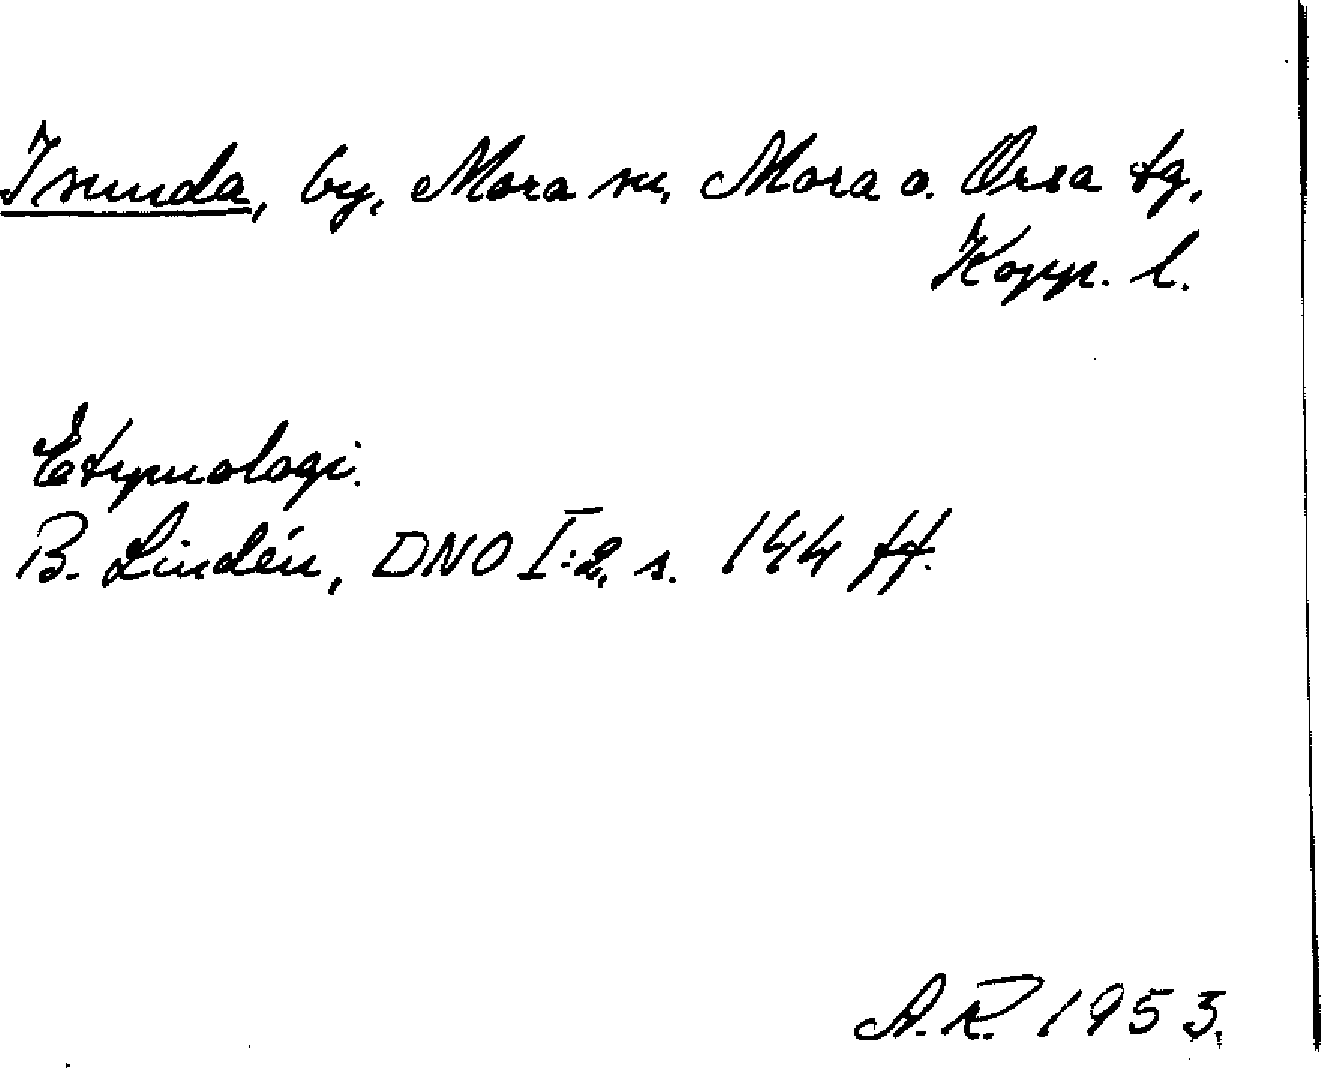 Isunda, by, Mora sn, Mora o. Orsa tg,
Kopp. l.
Etymologi.
B. Lindén, DNO I:2, s. 144 ff.
A.R. 1953.